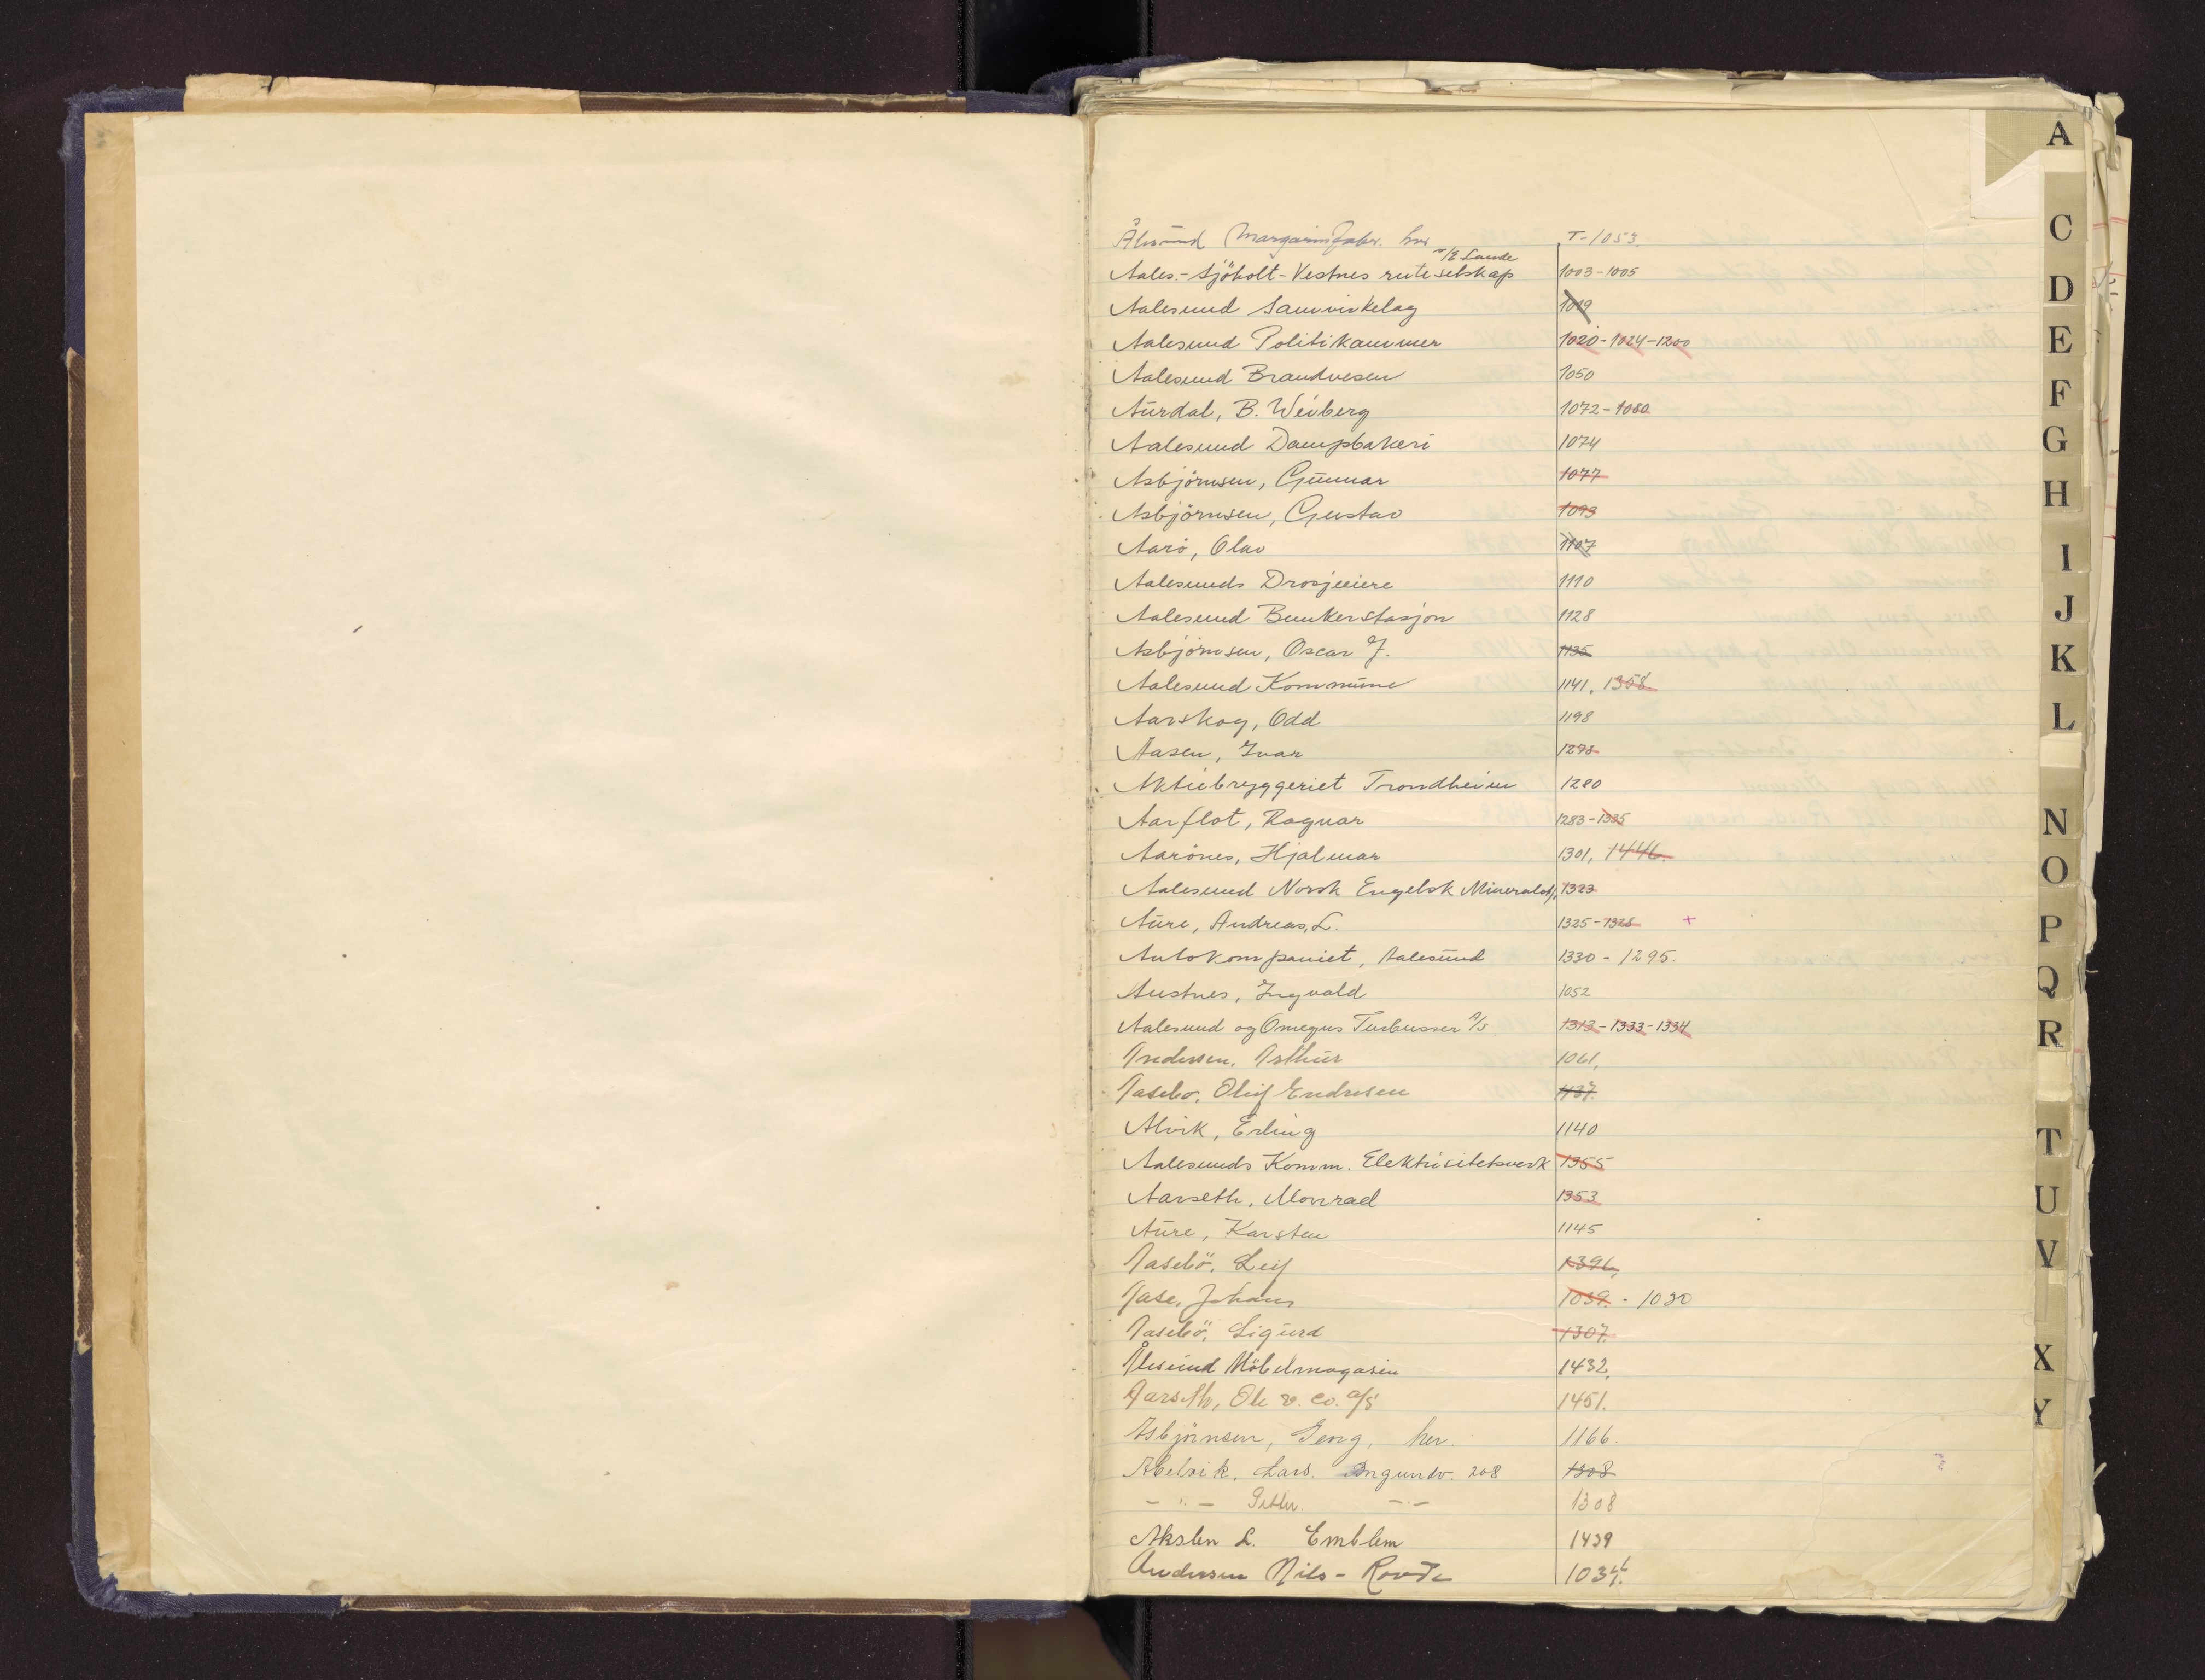 Ålesund Margarinfabr. her T-1053.
v/E Lande
Aales.-Sjöholt-Vestnes ruteselskap 1003-1005
Aalesund Samvirkelag 1019
Aalesund Politikammer 1020-1024-1200
Aalesund Brandvesen 1050
Aurdal, B. Weiberg 1072-1080
Aalesund Dampbakeri 1074
Asbjörnsen, Gunnar 1077
Asbjörnsen, Gustav 1093
Aarö, Olav 1107
Aalesunds Drosjeeiere 1110
Aalesund Bunkerstasjon 1128
Asbjörnsen, Oscar J. 1135
Aalesund Kommune 1141, 1358
Aarskog, Odd 1198
Aasen, Ivar 1278
Aktiebryggeriet Trondheim 1280
Aarflot, Ragnar 1283-1335
Aarönes, Hjalmar 1301, 1446.
Aalesund Norsk Engelsk Mineralolj. 1323
Aure, Andreas, L. 1325-1328 +
Autokompaniet, Aalesund 1330 - 1295.
Austnes, Ingvald 1052
Aalesund og Omegns Turbusser A/S 1313-1333-1334
Andersen, Arthur 1061,
Aasebo, Oluf Endresen 1137.
Alvik, Erling 1140
Aalesunds Komm. Elektrisitetsverk 1355
Aarseth, Monrad 1353
Aure, Karsten 1145
Aasebö, Leif 1396,
Aase, Johans 1039. - 1030
Aasebö, Sigurd 1307.
Ålesund Möbelmagasin 1432,
Aarseth, Ole & Co. A/S 1451.
Asbjörnsen, Georg, her. 1166.
Abelvik, Lars. 208 1308
- " - Petter. - " - 1308
Akslen L. Emblem 1439
Andersen Nils - Rovde 1034.
A
C
D
E
F
G
H
I
J
K
L
N
O
P
Q
R
T
U
V
X
Y